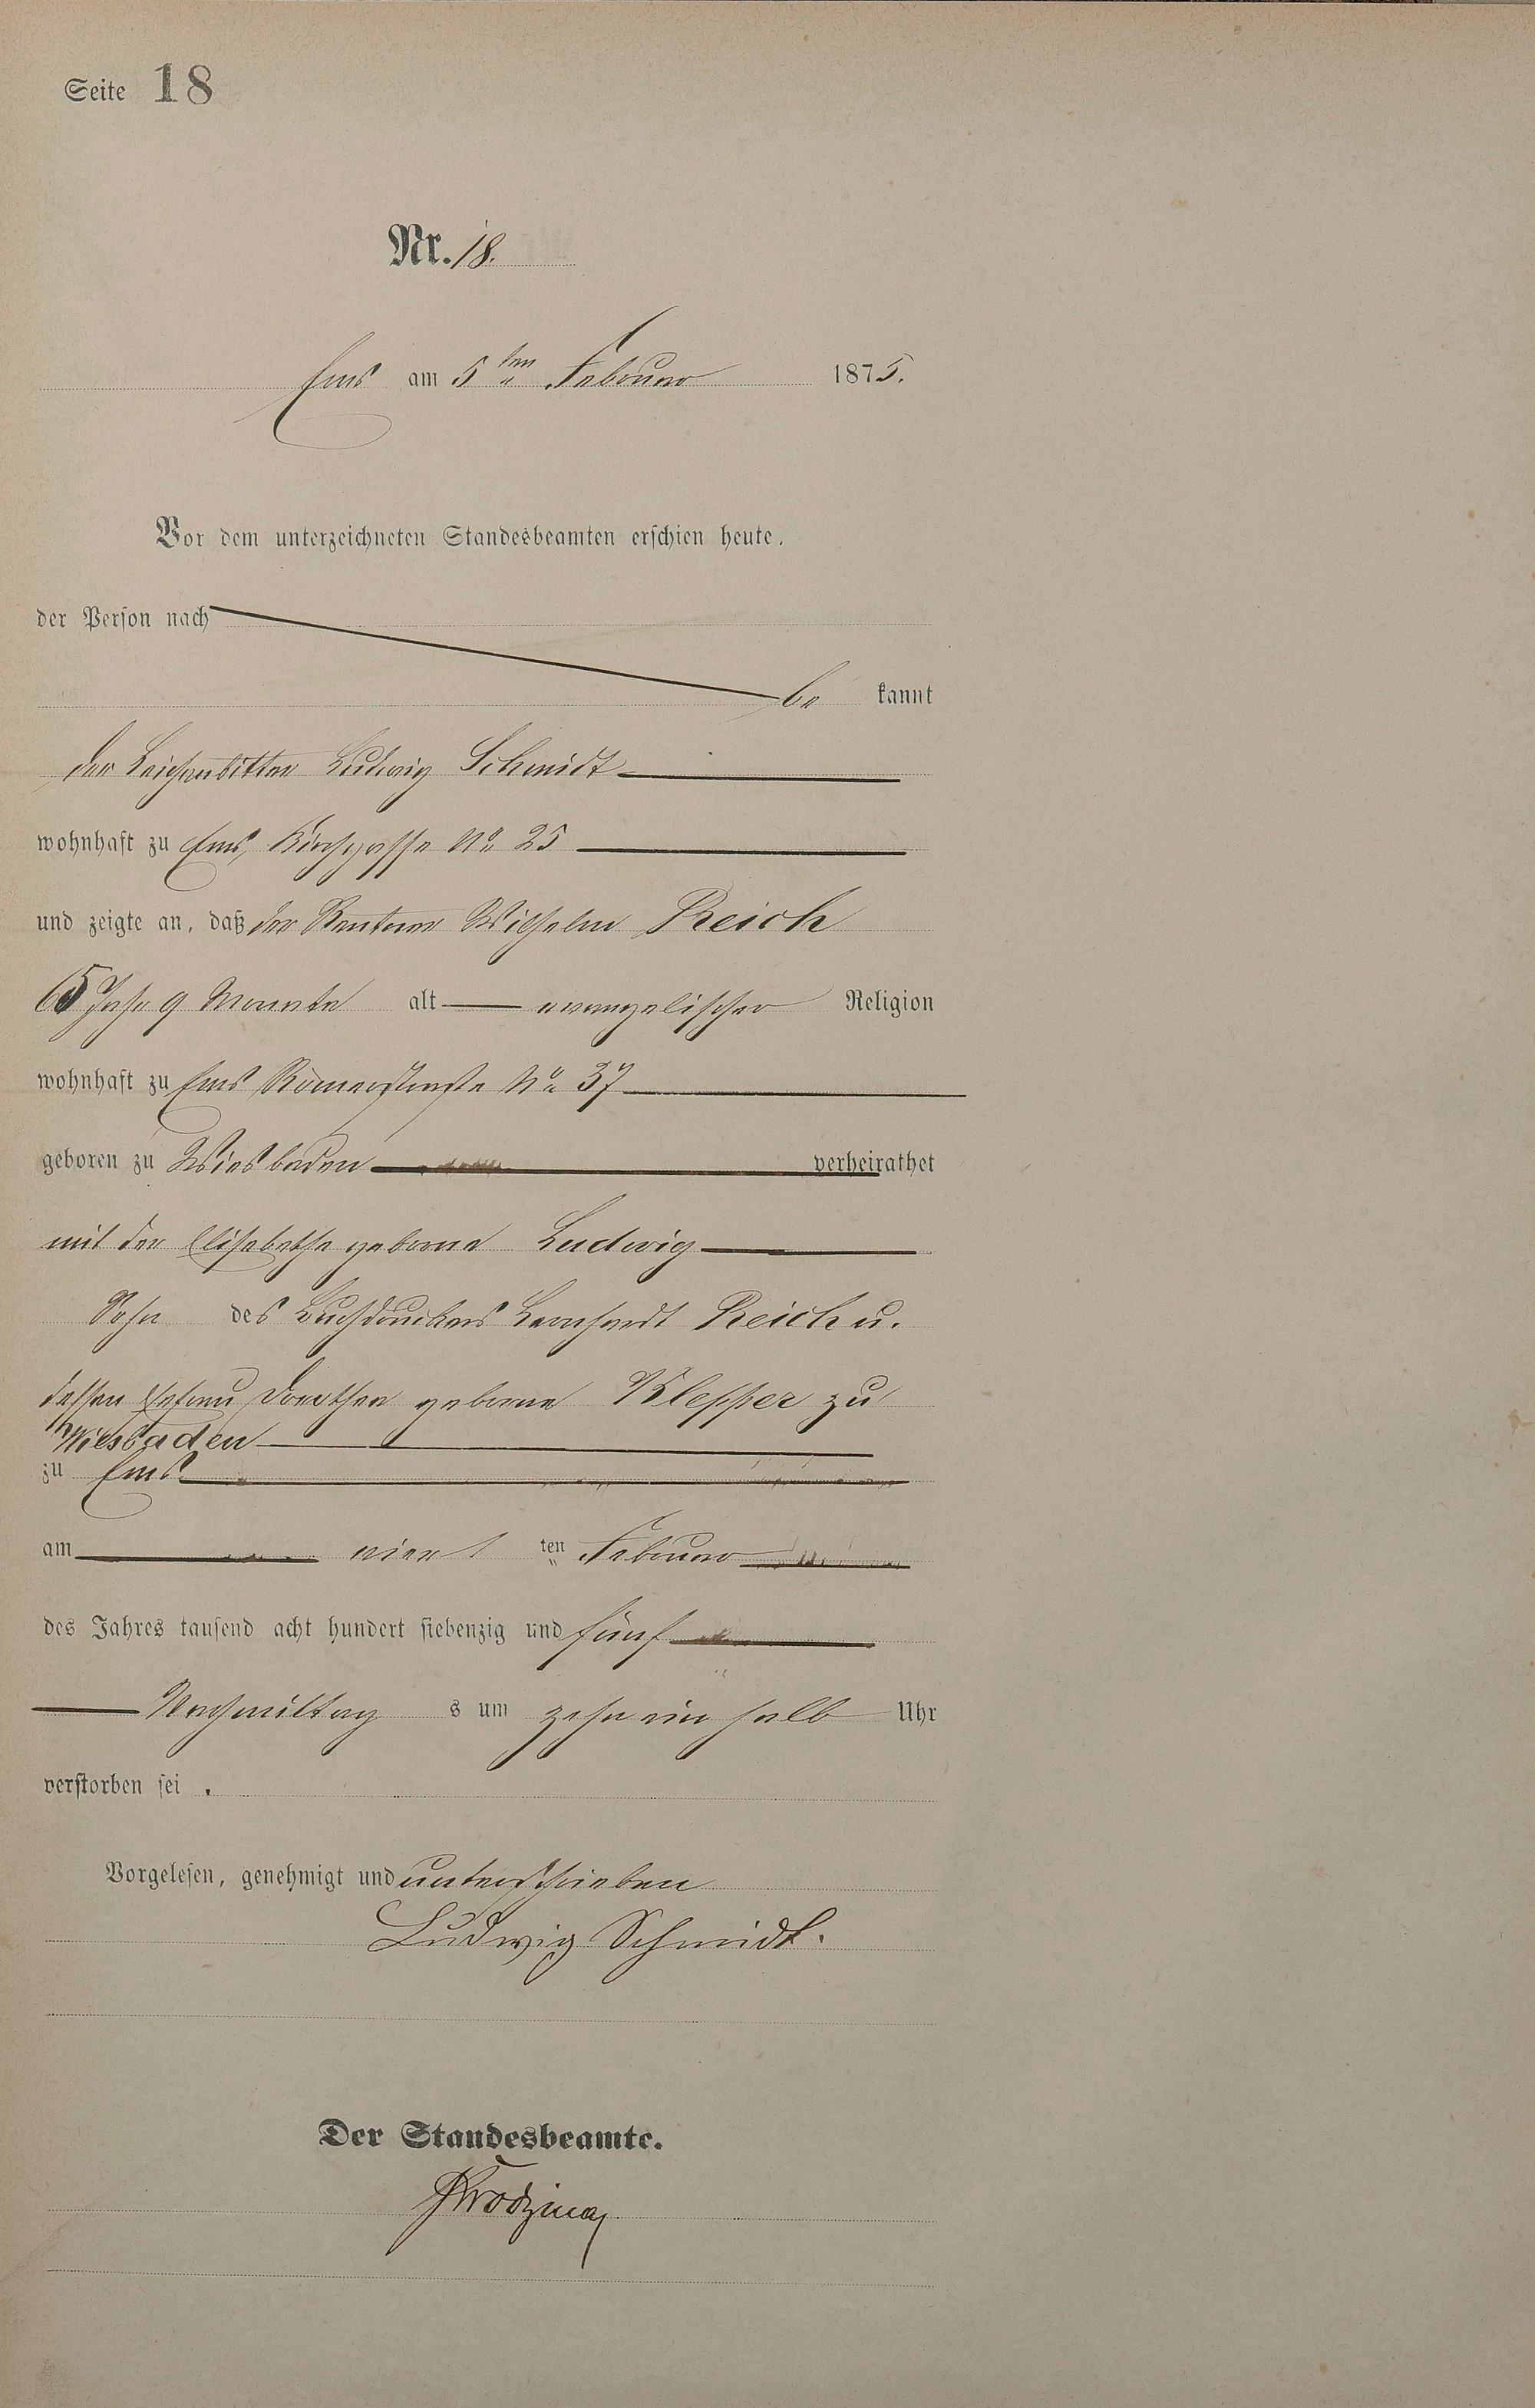 Seite 18
Nr. 18.
Ems am 5ten Februar 1875.
Vor dem unterzeichneten Standesbeamten erschien heute,
der Person nach
be kannt
der Leichenbitter Ludwig Schmidt
wohnhaft zu Ems, Kirchgasse No 25
und zeigte an, daß der Rentner Wilhelm Reich
65 Jahr 9 Monate alt evangelischer Religion
wohnhaft zu Ems Römerstraße No 37
geboren zu Wiesbaden verheirathet
mit der Elisabethe geborne Ludwig
Sohn des Buchdruckers Bernhardt Reich u.
dessen Ehefrau Dorothea geborne Klepper zu
Wiesbaden
zu Ems
am vier ten Februar
des Jahres tausend acht hundert siebenzig und fünf
Nachmittag s um zehn ein halb Uhr
verstorben sei .
Vorgelesen, genehmigt und unterschrieben
Ludwig Schmidt.
Der Standesbeamte.